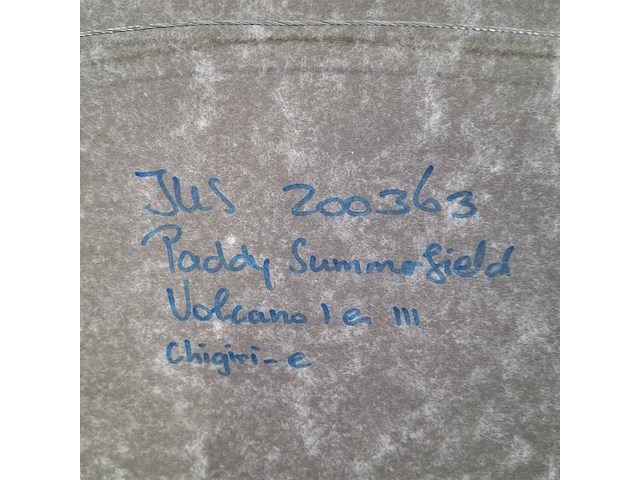 JUS 200363
Paddy Summerfield
Volcano I & III
Chigiri-e